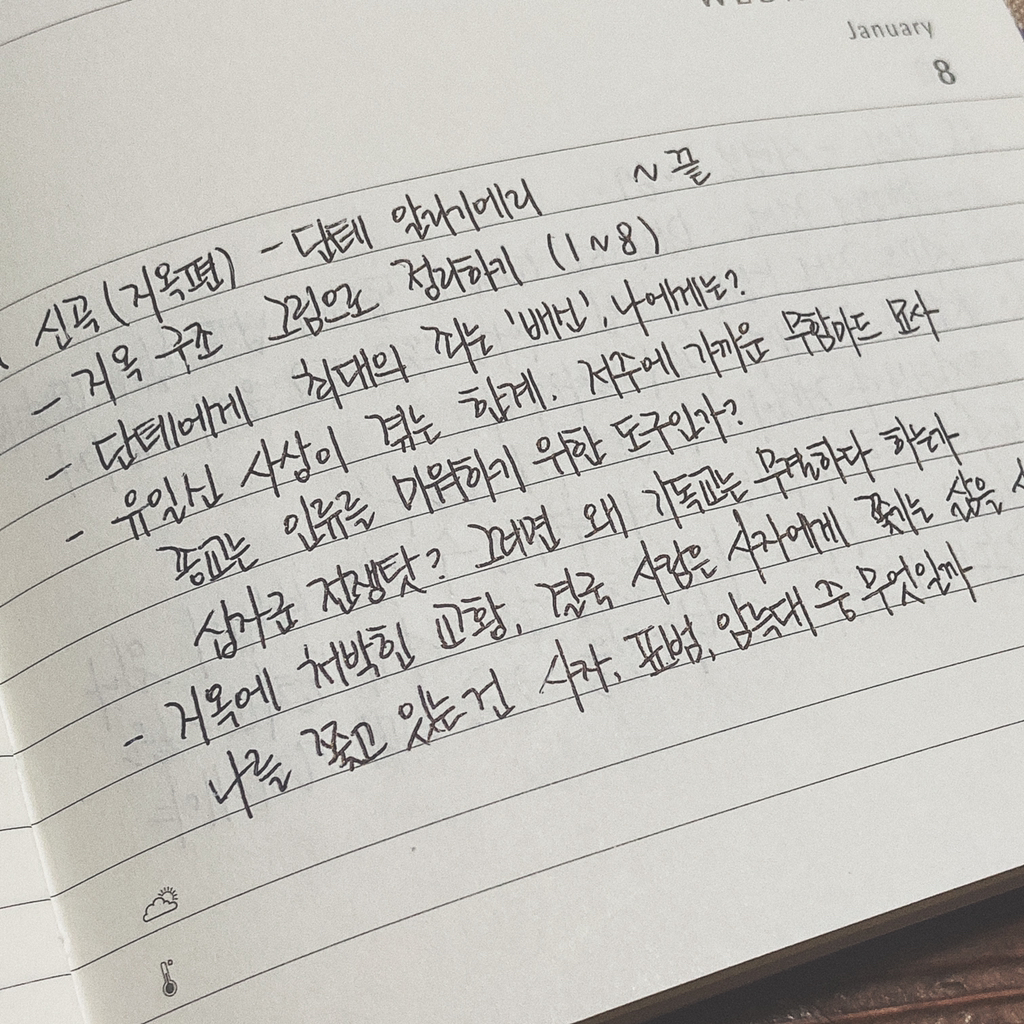 January
8
신곡(지옥편) - 단테 알리기에리 ~ 끝
- 지옥 구조 그림으로 정리하기 (1~8)
- 단테에게 최대의 죄는 '배신', 나에게는?
- 유일신 사상이 겪는 한계. 저주에 가까운 무함마드 묘사
종교는 인류를 미워하기 위한 도구인가?
십자군 전쟁탓? 그러면 왜 기독교는 무결하다 하는가
- 지옥에 처박힌 교황, 결국 사람은 사자에게 쫓기는 삶을
나를 쫓고 있는 건 사자, 표범, 암늑대 중 무엇인가